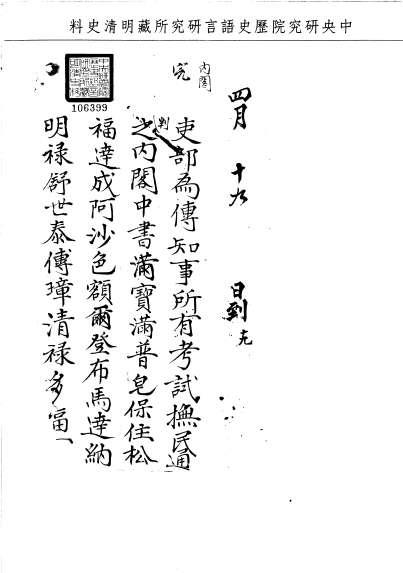 中央研究院歷史語言研究所藏明清史料
四月 十九 日到
吏部為傳知事所有考試撫民通
判之內閣中書滿寶滿普皂保住松
福達成阿沙色額爾登布馬達納
明祿舒世泰傅璋清祿多富
內閣
106399